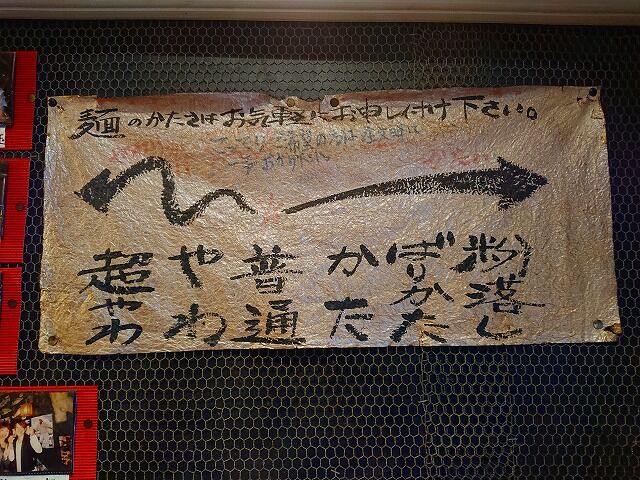 麺のかたさはお気軽にお申し付け下さい。
超やわ
やわ
普通
かた
ばりかた
粉落し